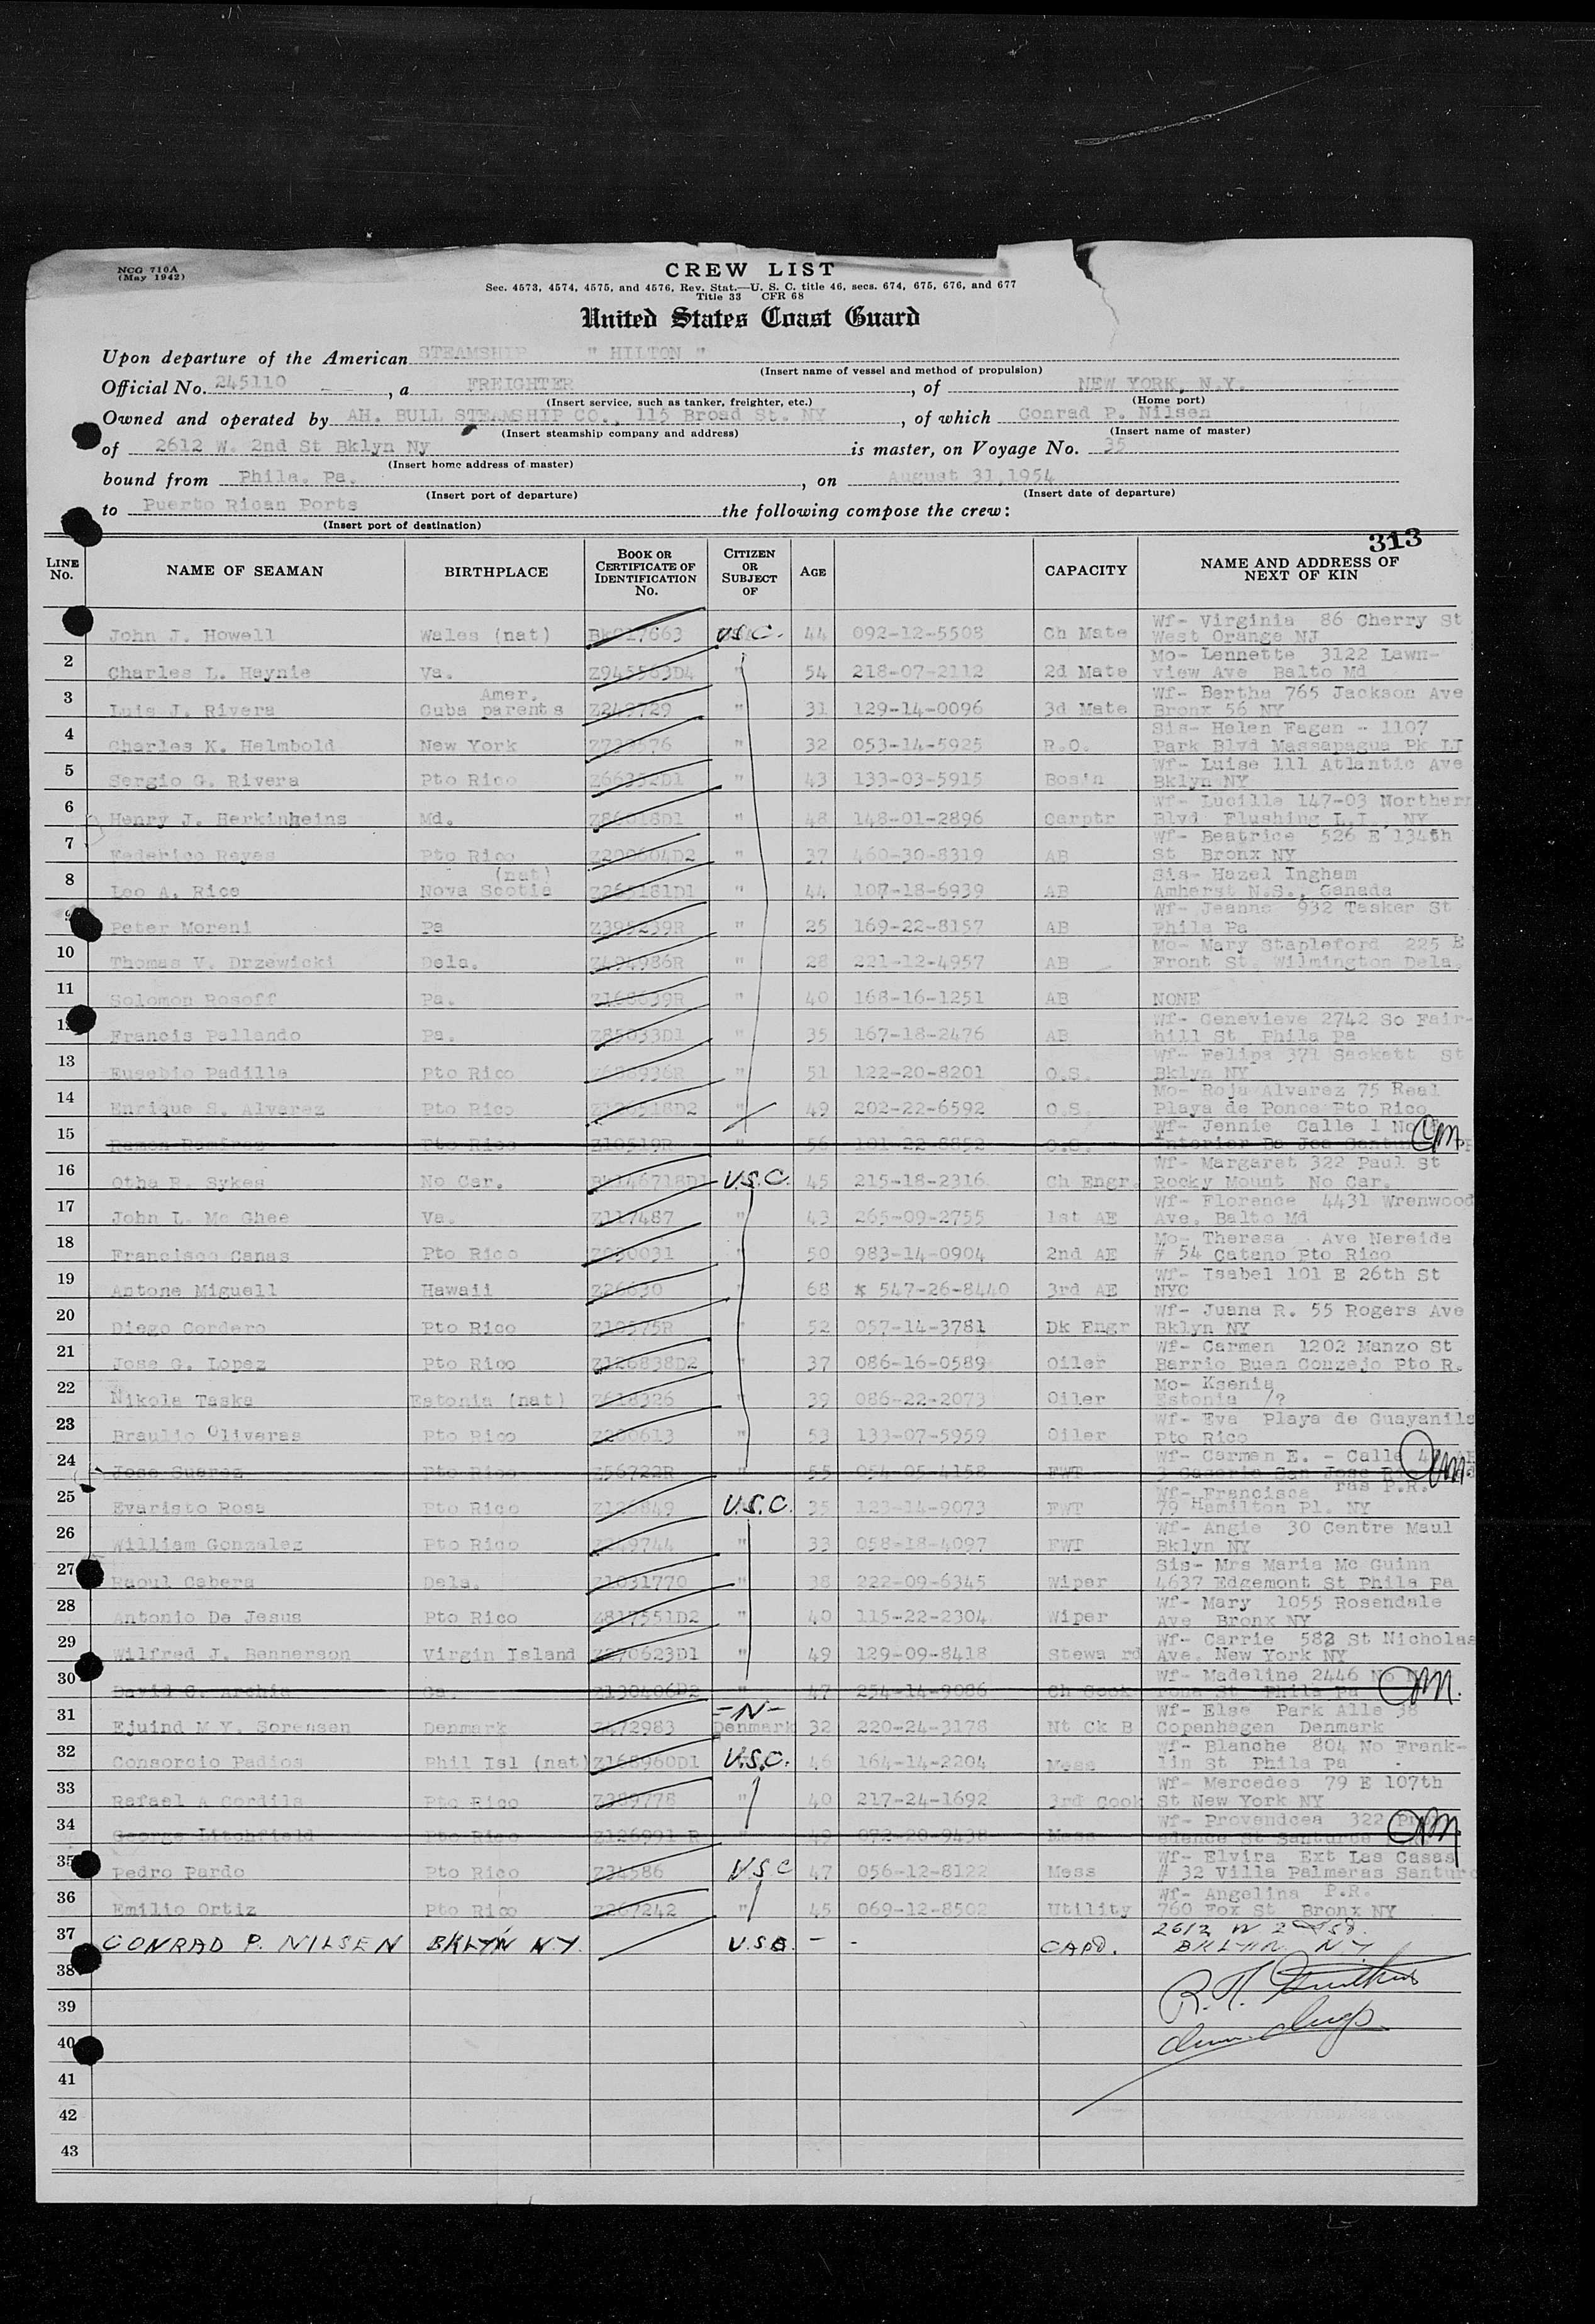 NCG 710A
(May 1942)
CREW LIST
Sec. 4573, 4574, 4575, and 4576, Rev. Stat.—U. S. C. title 46, secs. 674, 675, 676, and 677
Title 33 CFR 68
United States Coast Guard
Upon departure of the American STEAMSHIP " HILTON "
(Insert name of vessel and method of propulsion)
Official No. 245110 , a FREIGHTER , of NEW YORK, N.Y.
(Insert service, such as tanker, freighter, etc.) (Home port)
Owned and operated by AH. BULL STEAMSHIP CO., 115 Broad St. NY , of which Conrad P. Nilsen
(Insert steamship company and address) (Insert name of master)
of 2612 W. 2nd St Bklyn Ny is master, on Voyage No. 35
(Insert home address of master)
bound from Phila. Pa. , on August 31,1954
(Insert port of departure) (Insert date of departure)
to Puerto Rican Ports the following compose the crew:
(Insert port of destination)
313
LINE No. NAME OF SEAMAN BIRTHPLACE BOOK OR CERTIFICATE OF IDENTIFICATION No. CITIZEN OR SUBJECT OF AGE CAPACITY NAME AND ADDRESS OF NEXT OF KIN
John J. Howell Wales (nat) U.S.C. 44 092-12-5508 Ch Mate Wf- Virginia 86 Cherry St
West Orange NJ
2 Charles L. Haynie Va. Z945563D4 " 54 218-07-2112 2d Mate Mo- Lennette 3122 Lawn-
view Ave Balto Md
3 Luis J. Rivera Amer.
Cuba parents Z249729 " 31 129-14-0096 3d Mate Wf- Bertha 765 Jackson Ave
Bronx 56 NY
4 Charles K. Helmbold New York " 32 053-14-5925 R.O. Sis- Helen Fagan - 1107
Park Blvd Massapagua Pk LI
5 Sergio G. Rivera Pto Rico Z66352D1 " 43 133-03-5915 Bos'n Wf- Luise 111 Atlantic Ave
Bklyn NY
6 Henry J. Herkinheins Md. Z86018D1 " 48 148-01-2896 Carptr Wf- Lucille 147-03 Northern
Blvd Flushing L.I., NY
7 Federico Reyes Pto Rico Z200604D2 " 37 460-30-8319 AB Wf- Beatrice 526 E 134th
St Bronx NY
8 Leo A. Rice (nat)
Nova Scotia Z265181D1 " 44 107-18-6939 AB Sis- Hazel Ingham
Amherst N.S., Canada
9 Peter Moreni Pa Z395239R " 25 169-22-8157 AB Wf- Jeanne 932 Tasker St
Phila Pa
10 Thomas V. Drzewicki Dela. Z494986R " 28 221-12-4957 AB Mo- Mary Stapleford 225 E
Front St. Wilmington Dela.
11 Solomon Rosoff Pa. Z168639R " 40 168-16-1251 AB NONE
12 Francis Pallando Pa. Z85033D1 " 35 167-18-2476 AB Wf- Genevieve 2742 So Fair-
hill St Phila Pa
13 Eusebio Padilla Pto Rico " 51 122-20-8201 O.S. Wf- Felipa 371 Sackett St
Bklyn NY
14 Enrique S. Alvarez Pto Rico " 49 202-22-6592 O.S. Mo- Roja Alvarez 75 Real
Playa de Ponce Pto Rico
15 Ramon Ramirez Pto Rico Z10519R 56 101-22-8852 O.S. Wf- Jennie Calle 1 No
Interior
16 Otha R. Sykes No Car. U.S.C. 45 215-18-2316 Ch Engr. Wf- Margaret 322 Paul St
Rocky Mount No Car.
17 John L. Mc Ghee Va. Z117487 " 43 265-09-2755 1st AE Wf- Florence 4431 Wrenwood
Ave. Balto Md
18 Francisco Canas Pto Rico " 50 983-14-0904 2nd AE Mo- Theresa Ave Nereida
# 54 Catano Pto Rico
19 Antone Miguell Hawaii Z26630 " 68 * 547-26-8440 3rd AE Wf- Isabel 101 E 26th St
NYC
20 Diego Cordero Pto Rico Z10575R " 52 057-14-3781 Dk Engr Wf- Juana R. 55 Rogers Ave
Bklyn NY
21 Jose G. Lopez Pto Rico Z126838D2 " 37 086-16-0589 Oiler Wf- Carmen 1202 Manzo St
Barrio Buen Conzejo Pto R.
22 Nikola Taska Estonia (nat) Z618326 " 39 086-22-2073 Oiler Mo- Ksenia
Estonia /?
23 Braulio Oliveras Pto Rico Z200613 " 53 133-07-5959 Oiler Wf- Eva Playa de Guayanila
Pto Rico
24 Jose Suarez Pto Rico Z56722R " 55 054-05-4158 FWT Wf- Carmen E. - Calle
San Jose
ras P.R.
25 Evaristo Rosa Pto Rico U.S.C. 35 123-14-9073 FWT Wf- Francisca
79 Hamilton Pl. NY
26 William Gonzalez Pto Rico " 33 058-18-4097 FWT Wf- Angie 30 Centre Maul
Bklyn NY
27 Raoul Cabera Dela. Z1031770 " 38 222-09-6345 Wiper Sis- Mrs Maria Mc Guinn
4637 Edgemont St Phila Pa
28 Antonio De Jesus Pto Rico Z817551D2 " 40 115-22-2304 Wiper Wf- Mary 1055 Rosendale
Ave Bronx NY
29 Wilfred J. Bennerson Virgin Island Z270623D1 " 49 129-09-8418 Stewa rd Wf- Carrie 582 St Nicholas
Ave. New York NY
30 David C. Archie Ga. Z130406D2 " 47 254-14-9086 Ch Cook Wf- Madeline 2446 No
St Phila Pa
31 Ejuind M Y. Sorensen Denmark -N-
Denmark 32 220-24-3178 Nt Ck B Wf- Else Park Alle 38
Copenhagen Denmark
32 Consorcio Padios Phil Isl (nat) Z168960D1 U.S.C. 46 164-14-2204 Mess Wf- Blanche 804 No Frank-
lin St Phila Pa
33 Rafael A Cordila Pto Rico Z389778 " 40 217-24-1692 3rd Cook Wf- Mercedes 79 E 107th
St New York NY
34 George Litchfield Pto Rico Z126991 R 49 072-20-9438 Mess Wf- Provendcea 322
edence St Santurce
35 Pedro Pardo Pto Rico Z34586 U.S.C 47 056-12-8122 Mess Wf- Elvira Ext Las Casas
# 32 Villa Palmeras Santurc
P.R.
36 Emilio Ortiz Pto Rico Z267242 " 45 069-12-8502 Utility Wf- Angelina
760 Fox St Bronx NY
37 CONRAD P. NILSEN BKLYN N.Y. - - 2612 W 2
BKLYN N.Y
38
39
40
41
42
43